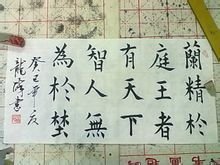 蘭精於
庭王者
有天下
智人無
為於埜
癸巳年夏
龍書